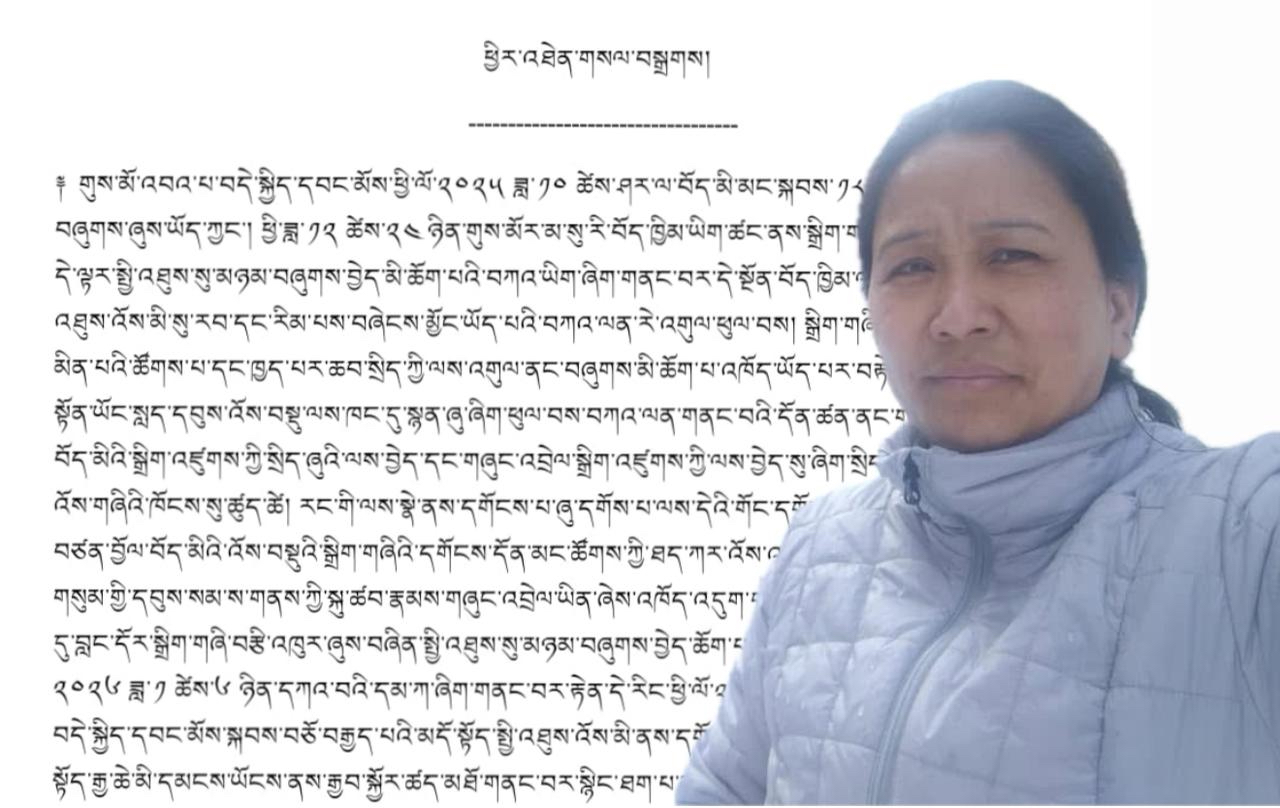 ཕྱིར་འཐེན་གསལ་བསྒྲགས།
---------------------------------
༈ གུས་མོ་འབའ་པ་བདེ་སྐྱིད་དབང་མོས་ཕྱི་ལོ་༢༠༢༥ ཟླ་༡༠ ཚེས་ཤར་ལ་བོད་མི་མང་སྐབས་
བཞུགས་ཞུས་ཡོད་ཀྱང་། ཕྱི་ཟླ་༡༢ ཚེས་༢༤ ཉིན་གུས་མོར་མ་སུ་རི་བོད་ཁྱིམ་ཡིག་ཚང་ནས་སྒྲིག་
དེ་ལྟར་སྤྱི་འཐུས་སུ་མཉམ་བཞུགས་བྱེད་མི་ཆོག་པའི་བཀའ་ཡིག་ཞིག་གནང་བར་དེ་སྔོན་བོད་ཁྱིམ་
འཐུས་འོས་མི་སུ་རབ་དང་རིམ་པས་བཞེངས་མྱོང་ཡོད་པའི་བཀའ་ལན་རེ་འགུལ་ཕུལ་བས། སྒྲིག་གཞི
མིན་པའི་ཚོགས་པ་དང་ཁྱད་པར་ཆབ་སྲིད་ཀྱི་ལས་འགུལ་ནང་བཞུགས་མི་ཆོག་པ་འཁོད་ཡོད་པར་བརྟེ
སྟོན་ཡོང་སླད་དབུས་འོས་བསྡུ་ལས་ཁང་དུ་སྙན་ཞུ་ཞིག་ཕུལ་བས་བཀའ་ལན་གནང་བའི་དོན་ཚན་ནང་
བོད་མིའི་སྒྲིག་འཛུགས་ཀྱི་སྲིད་ཞུའི་ལས་བྱེད་དང་གཞུང་འབྲེལ་སྒྲིག་འཛུགས་ཀྱི་ལས་བྱེད་སུ་ཞིག་
འོས་གཞིའི་ཁོངས་སུ་ཚུད་ཚེ། རང་གི་ལས་སྣེ་ནས་དགོངས་པ་ཞུ་དགོས་པ་ལས་དེའི་གོང་
བཙན་བྱོལ་བོད་མིའི་འོས་བསྡུའི་སྒྲིག་གཞིའི་དགོངས་དོན་མང་ཚོགས་ཀྱི་ཐད་ཀར་འོས་
གསུམ་གྱི་དབུས་སམ་ས་གནས་ཀྱི་སྐུ་ཚབ་རྣམས་གཞུང་འབྲེལ་ཡིན་ཞེས་འཁོད་འདུག་
དུ་བླང་དོར་སྒྲིག་གཞི་བརྩི་འཁུར་ཞུས་བཞིན་སྤྱི་འཐུས་སུ་མཉམ་བཞུགས་བྱེད་ཆོག་
༢༠༢༦ ཟླ་༡ ཚེས་༦ ཉིན་དཀའ་བའི་དམ་ཀ་ཞིག་གནང་བར་རྟེན་དེ་རིང་ཕྱི་ལོ་
བདེ་སྐྱིད་དབང་མོས་སྐབས་བཅོ་བརྒྱད་པའི་མདོ་སྟོད་སྤྱི་འཐུས་འོས་མི་ནས་
སྟོད་རྒྱ་ཆེ་མི་དམངས་ཡོངས་ནས་རྒྱབ་སྐྱོར་ཚད་མཐོ་གནང་བར་སྙིང་ཐག་པ་